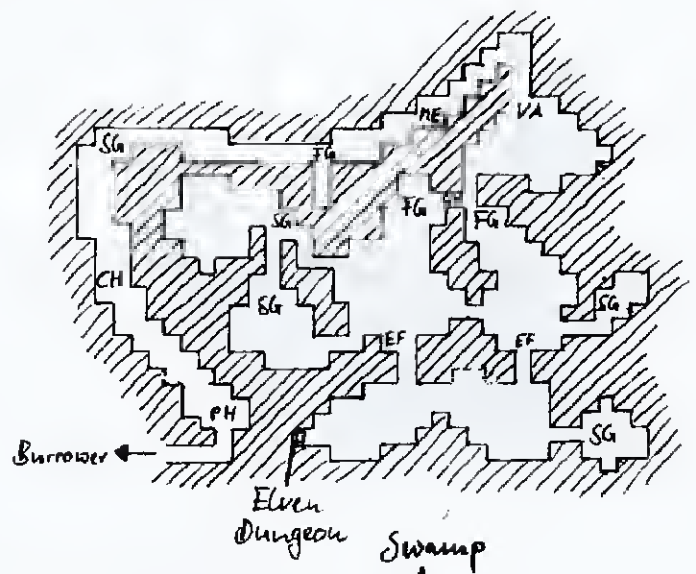 ME
VA
SG
FG
SG
FG
FG
CH
SG
SG
EF
EF
PH
SG
Burrower
Elven
Dungeon
Swamp